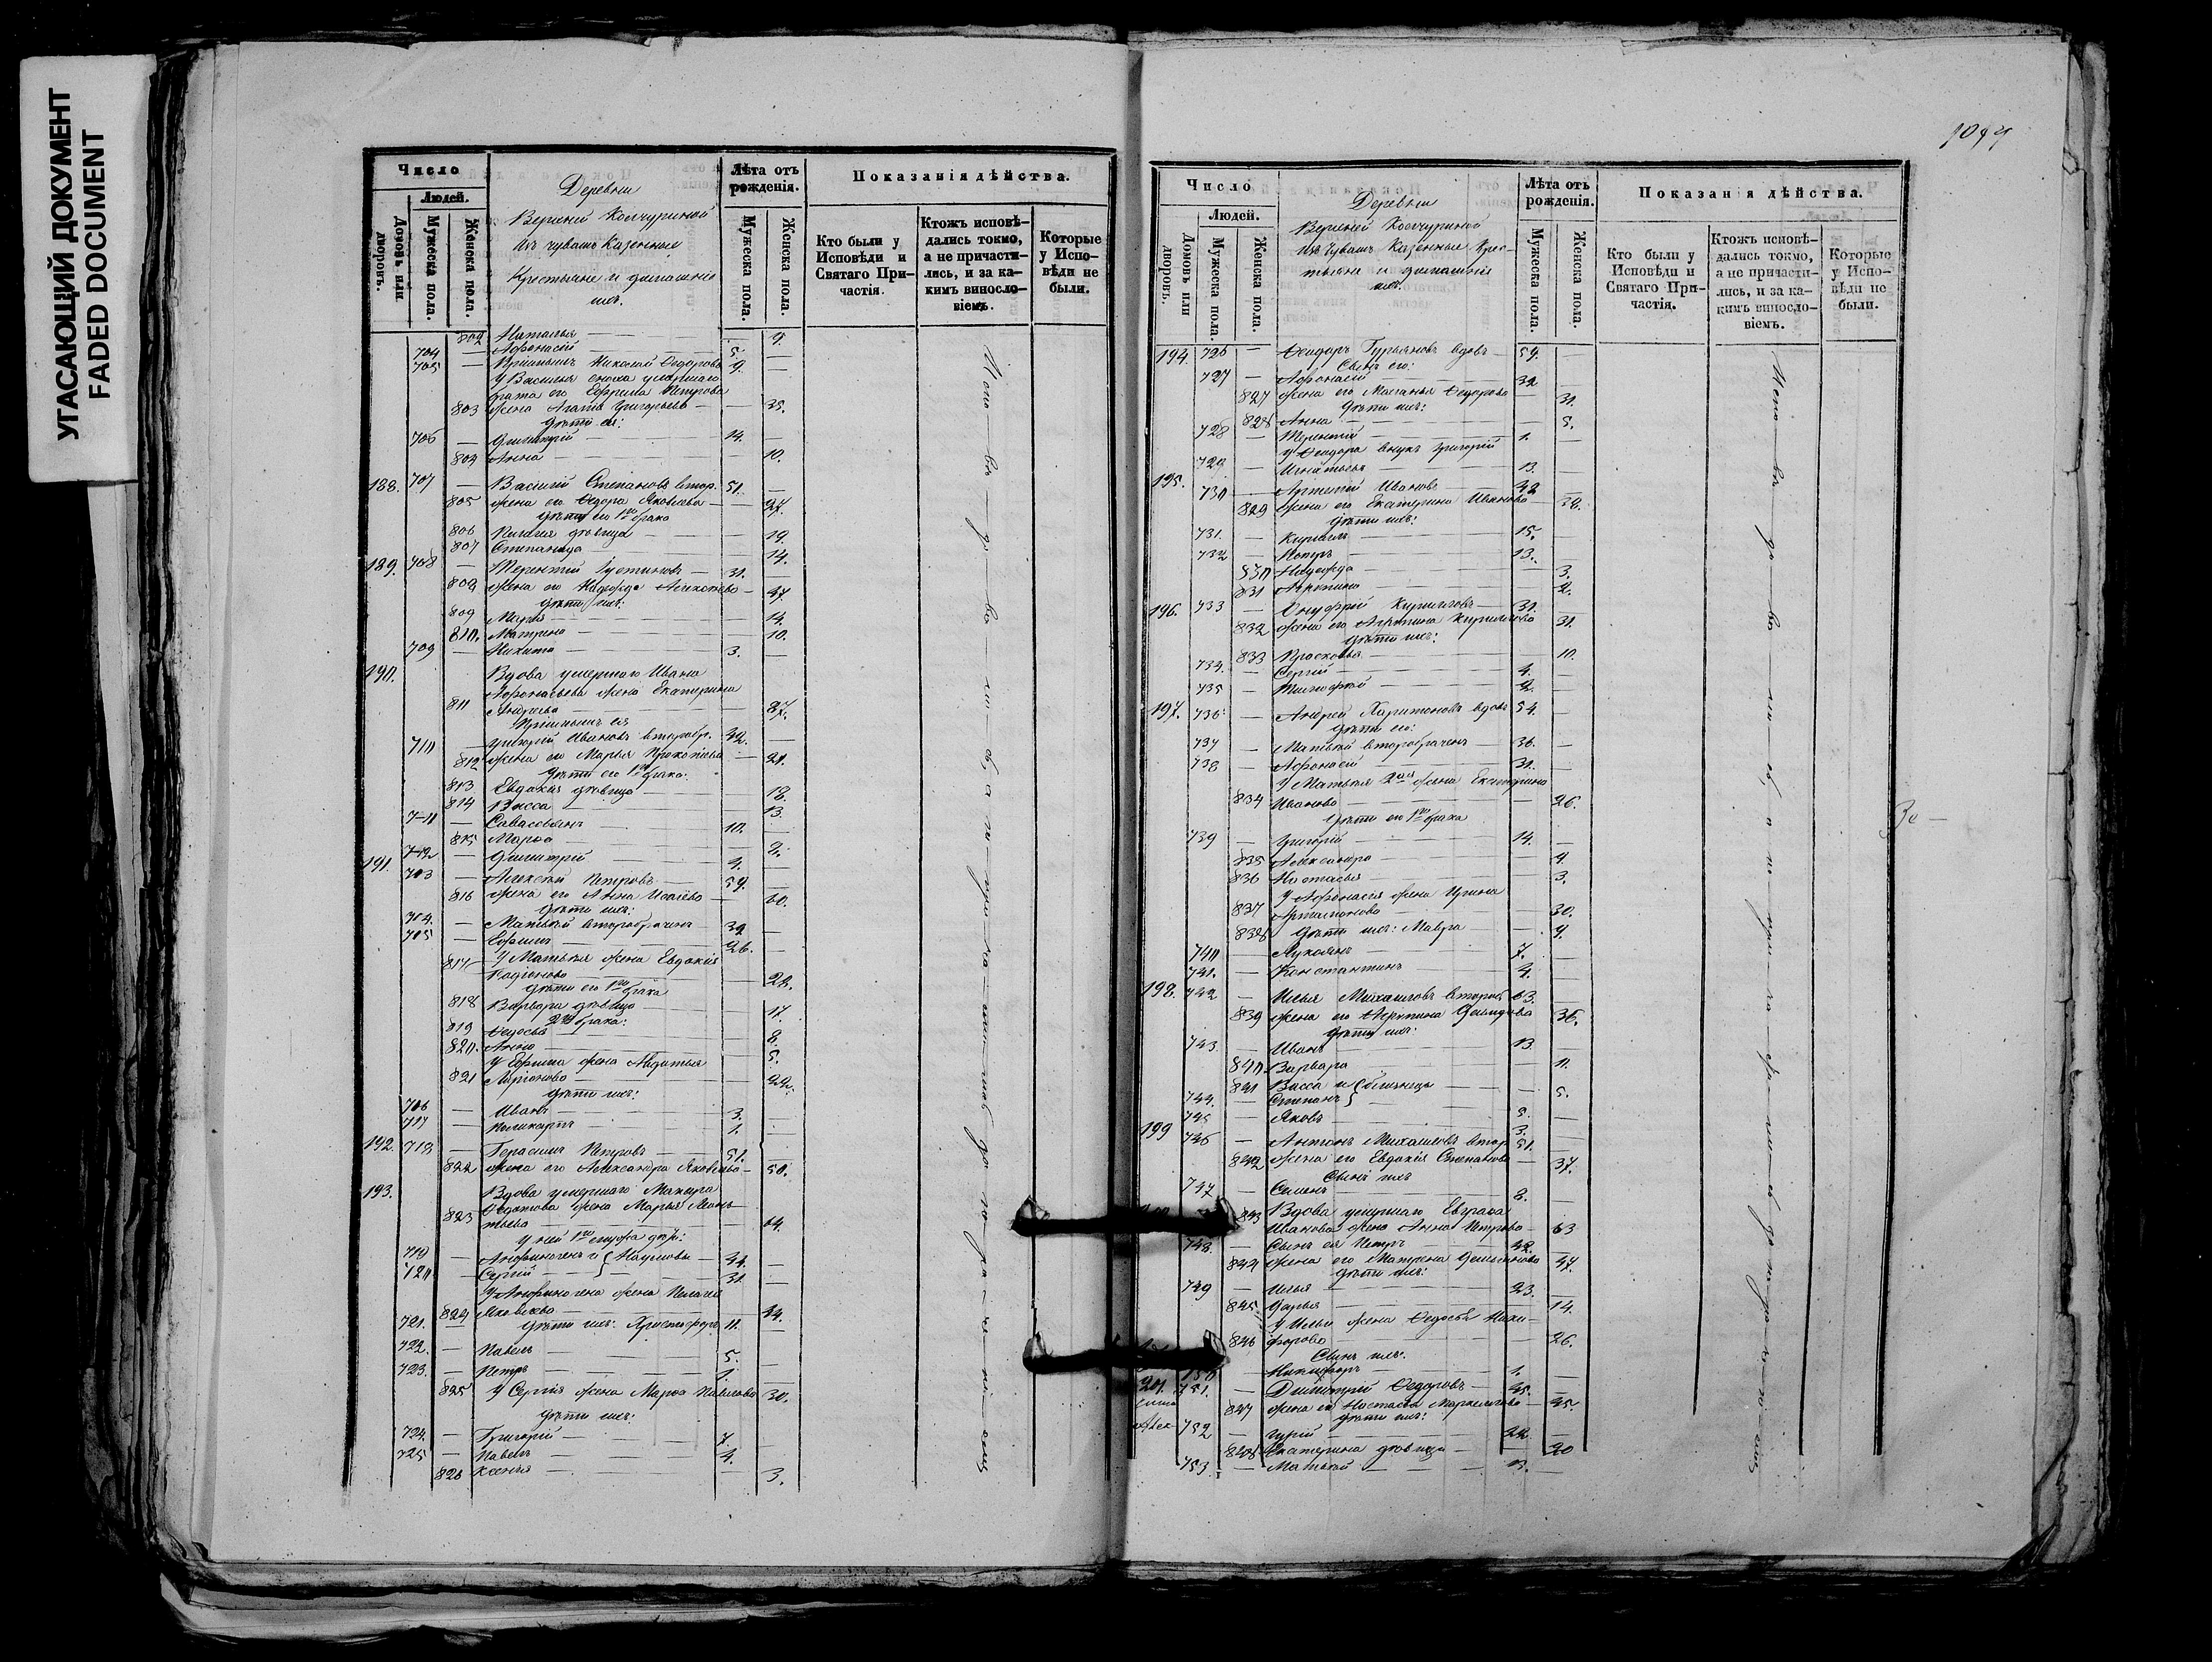 УГАСАЮЩИЙ ДОКУМЕНТ
FADED DOCUMENT
Число
Людей.
Домовъ или дворовъ.
Мужеска пола.
Женска пола.
Деревни
Верхней
изъ чувашъ Казенные
Крестьяне и домашніе
ихъ.
Лѣта отъ рожденія.
Мужеска пола.
Женска пола.
Показанія дѣйства.
Кто были у Исповѣди и Святаго Причастія.
Ктожъ исповѣдались токмо, а не причастились, и за какимъ винословіемъ.
Которые у Исповѣди не были.
802 Наталья — 9.
704 — Афонасій — 5. —
705 — Пріимышъ Николай Ѳедоровъ 9. —
У Василья сноха умершаго
брата его Ефрема Петрова
803 жена Агафья Григорьева — 35.
дѣти ея:
706 — Димитрій — 14. —
804 Анна — 10.
188. 707 — Василій Степановъ втор. 51. —
805 жена его Ѳедора Яковлева — 27.
дѣти его 1го брака
806 Пелагія дѣвица — 19.
807 Степанида — 14.
189. 708 — Терентій Іустиновъ — 31. —
808 жена его Надежда Алексѣева — 37.
дѣти ихъ:
809 Марья — 14.
810. Матрена — 10.
709 — Никита — 3. —
190. Вдова умершаго Ивана
Афонасьева жена Екатерина
811 Андреева — 87.
Пріимышъ ея
710 — Григорій Ивановъ второбр. 42. —
812 жена его Марья Прокопьева — 21.
дѣти его 1го брака:
813 Евдокія дѣвица — 18.
814 Васса — 13.
711 — Савастьянъ — 10. —
815 Марѳа — 8.
712 — Димитрій — 4. —
191. 713 — Алексѣй Петровъ — 59. —
816 жена его Анна Исаева — 60.
дѣти ихъ:
714. — Матвѣй второбрачен 32 —
715 — Ефимъ — 26. —
У Матвѣя жена Евдокія
817 Родіонова — 22.
дѣти его 1го брака
818 Варвара дѣвица — 17.
2го брака:
819 Ѳедосья — 8.
820. Анна — 5.
У Ефима жена Авдотья
821 Ларіонова — 22.
дѣти ихъ:
716 — Иванъ — 3. —
717 — Поликарпъ — 1. —
192. 718 — Герасимъ Петровъ — 51. —
822 жена его Александра Яковлева — 50.
193. Вдова умершаго Макара
Ѳедотова жена Марья Леон-
823 тьева — 64.
У ней 1го мужа дѣти:
719 — Анфиногенъ и } Наумовы — 34. —
720 — Сергій — 31 —
У Анфиногена жена Пелагея
824 Яковлева — 34.
721. дѣти ихъ: Христофоръ 11. —
722. — Павелъ — 5. —
723. — Петръ — 1. —
825 У Сергія жена Марѳа Павлова 30.
дѣти ихъ:
724. — Григорій — 7. —
725 — Павелъ — 4. —
826 Ксенія — 3.
Число
Людей.
Домовъ или дворовъ.
Мужеска пола.
Женска пола.
Деревни
Верхней
изъ Чувашъ Казенные Крес-
тьяне и домашніе
ихъ.
Лѣта отъ рожденія.
Мужеска пола.
Женска пола.
Показанія дѣйства.
Кто были у Исповѣди и Святаго Причастія.
Ктожъ исповѣдались токмо, а не причастились, и за какимъ винословіемъ.
Которые у Исповѣди не были.
194. 726 — Ѳеодоръ Гурьяновъ вдовъ — 59. —
Сынъ его:
727 — Афонасій — 32 —
827 жена его Маланья Ѳедорова — 31.
дѣти ихъ:
828 Анна — 5.
728 — Терентій — 1. —
У Ѳеодора внукъ Григорій
729 — Игнатьевъ — 13. —
195. 730 — Артемій Ивановъ — 42 —
829 жена его Екатерина Иванова — 38.
дѣти ихъ:
731. — Кириллъ — 15. —
732 — Петръ — 13. —
830 Надежда — 3.
831 Агрипина — 2.
196. 733 — Онуфрій Кирилловъ — 31. —
832 жена его Агрипина Кирилова 31.
дѣти ихъ:
833 Просковья — 10.
734. — Сергій — 4. —
735 — Тимофей — 2. —
197. 736 — Андрей Харитоновъ вдовъ 54. —
дѣти его:
737 — Матвѣй второбрачен — 36. —
738 — Афонасій — 31. —
У Матвѣя 2ая жена Екатерина
834 Иванова — 26.
дѣти его 1го брака
739 — Григорій — 14. —
835 Александра — 7.
836 Настасья — 3.
У Афонасія жена Ирина
837 Артамонова — 30.
838 дѣти ихъ: Мавра — 9.
740 — Лукоянъ — 7. —
741. — Константинъ — 4. —
198. 742 — Илья Михаиловъ второб 63. —
839 жена его Агрипина Демидова 36.
дѣти ихъ:
743. — Иванъ — 13. —
840 Варвара — 11.
841 Васса и } близнецы — 5.
744. — Степанъ — 5. —
745 — Яковъ — 3. —
199 746 — Антонъ Михаиловъ втор 51. —
842 жена его Евдокія Степанова — 37.
Сынъ ихъ
747 — Семенъ — 8. —
843 Вдова умершаго Евграфа
Иванова жена Анна Петрова — 63
748. — Сынъ ея Петръ — 42. —
844 жена его Матрена Демьянова 47.
дѣти ихъ:
749 — Илья — 23. —
845 Дарья — 14.
У Ильи жена Ѳедосья Ники-
846 форова — 26.
Сынъ ихъ:
750 — Никифоръ — 1. —
201. 751. — Димитрій Ѳедоровъ — 45. —
847 жена его Настасья Маркелова — 45.
дѣти ихъ:
752 — Гурій — 22. —
848 Екатерина дѣвица — 20
753. — Матвѣй — 13. —